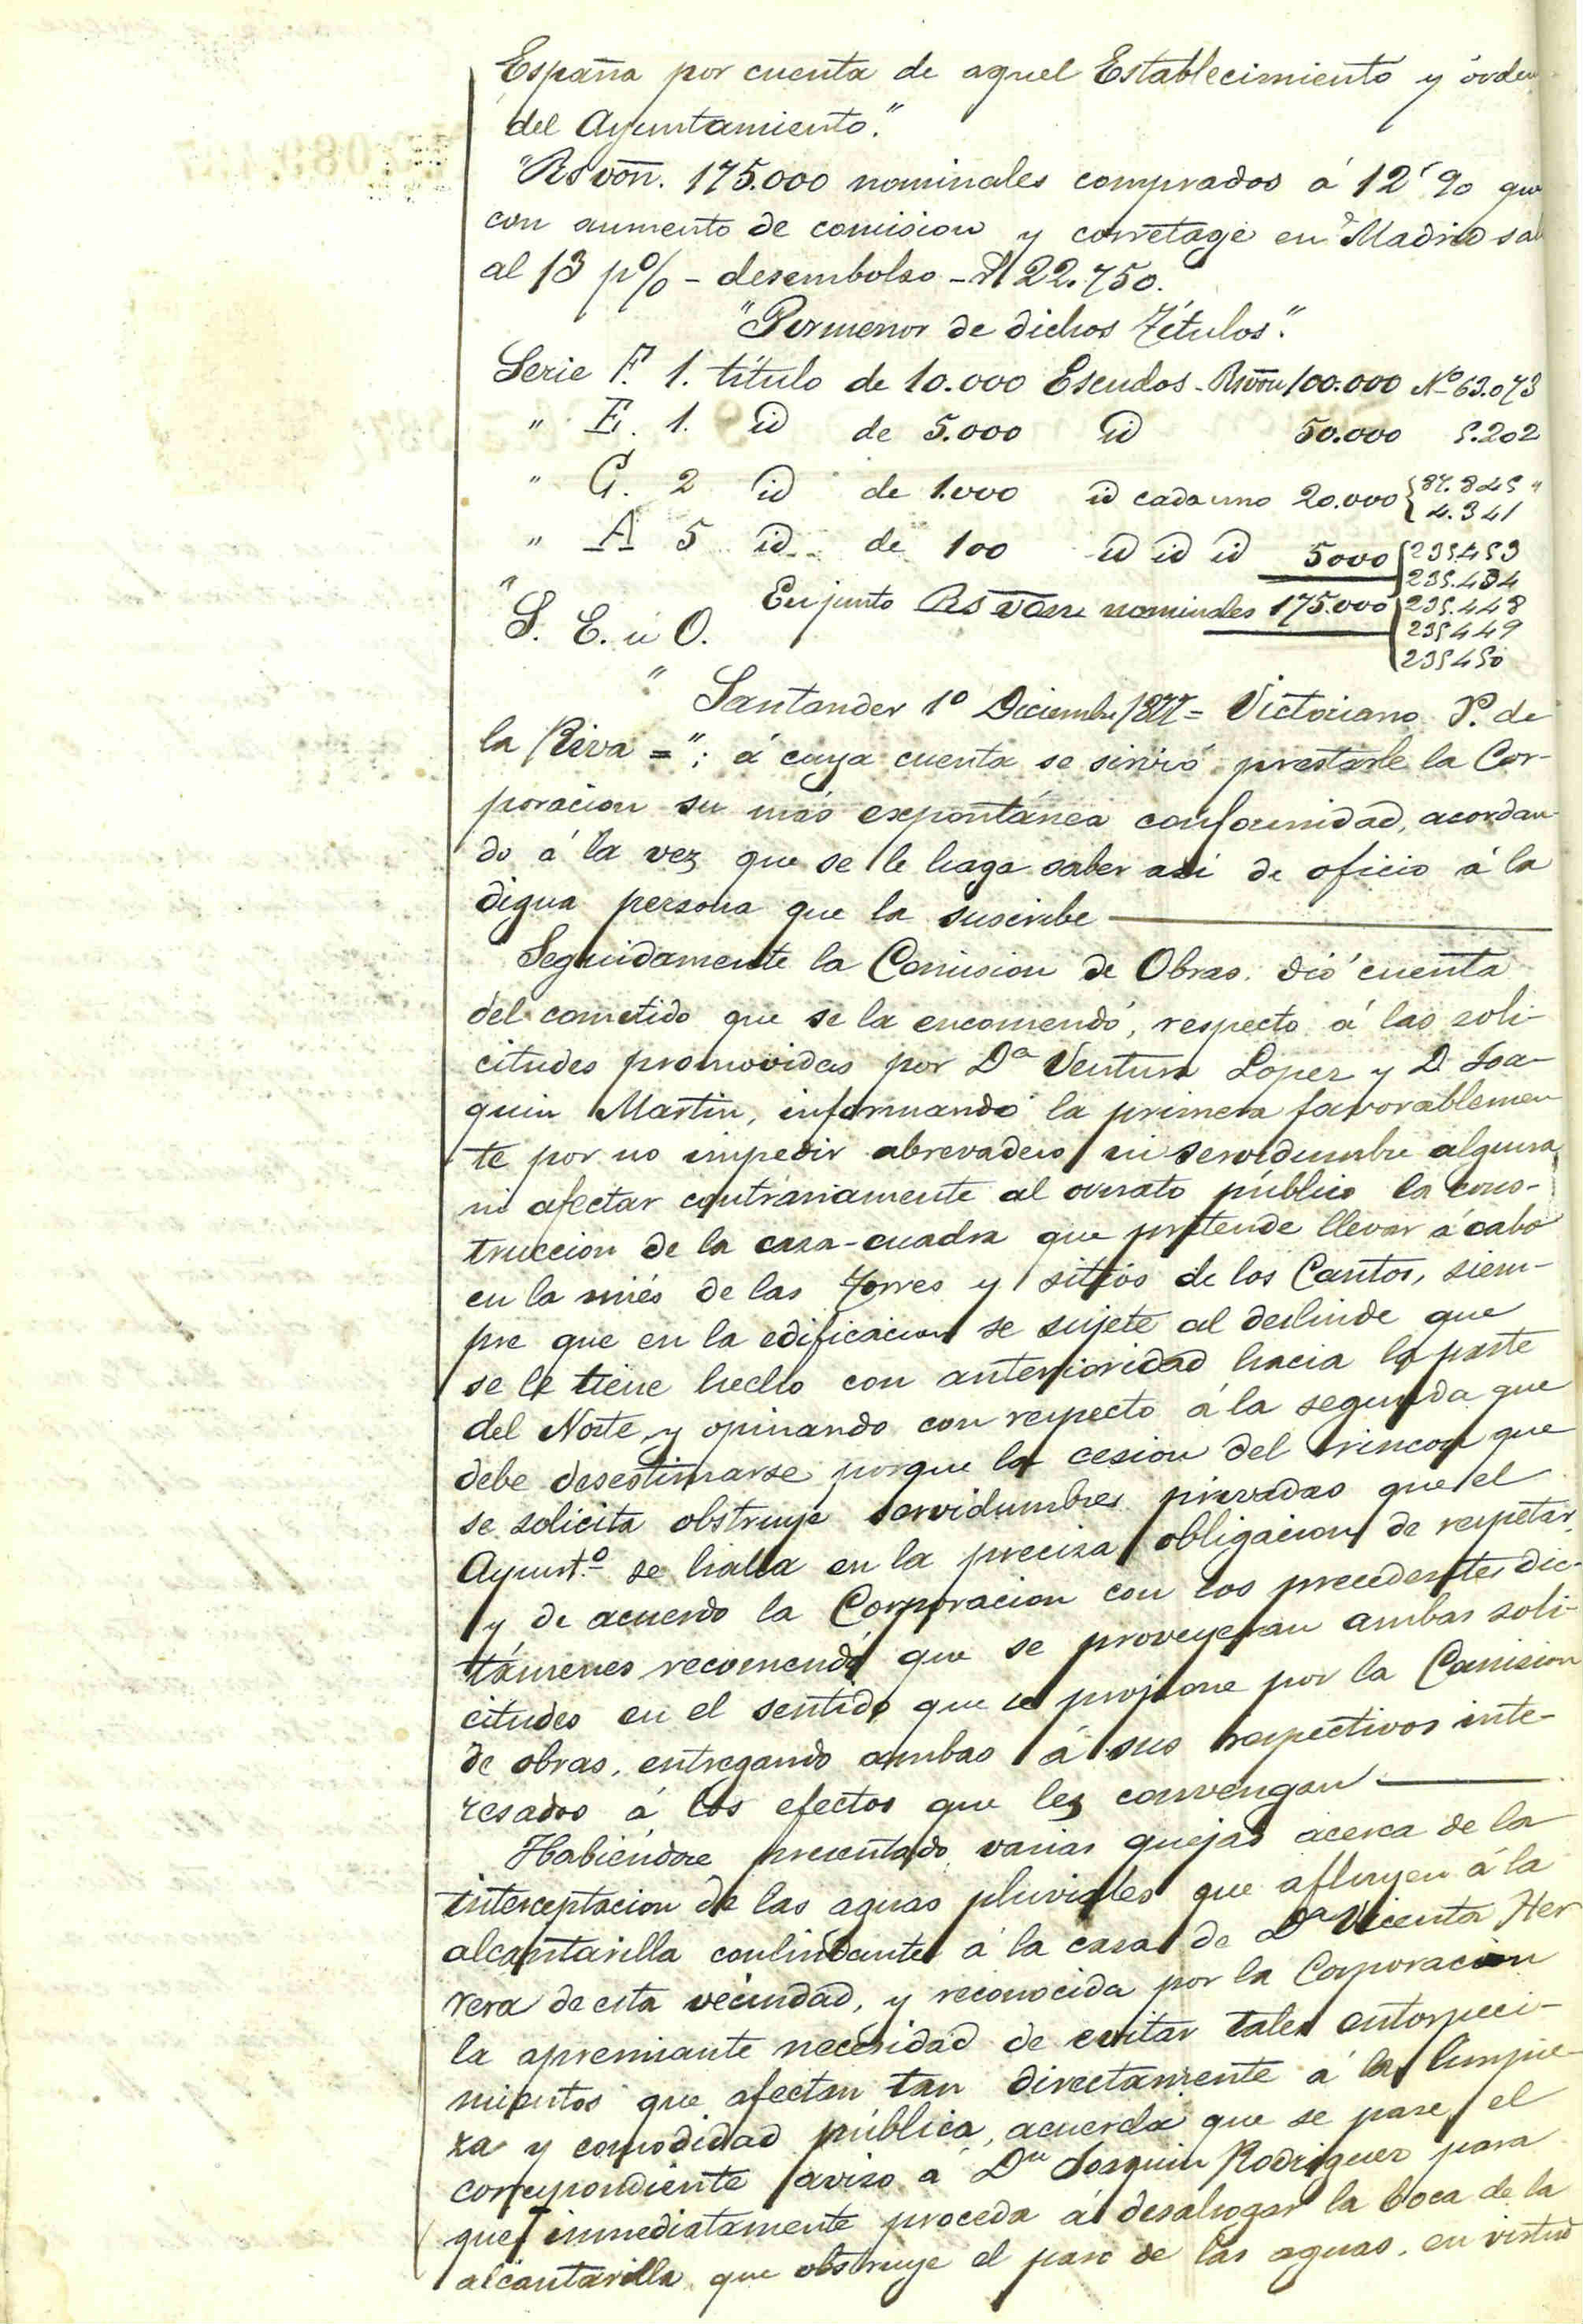 España por cuenta de aquel Establecimiento y órden
del Ayuntamiento."
"Rs von. 175.000 nominales comprados á 12'90 que
con aumento de comision y corretage en Madrid sal
al 13 p% - desembolso - R 22.750.
"Pormenor de dichos Títulos".
Serie F. 1. título de 10.000 Escudos - Rs von 100.000 Nº 63.073
" E. 1. id de 5.000 id 50.000 5.202
" C. 2 id de 1.000 id cada uno 20.000 { 87.845 "
4.341
" A 5 id de 100 id id id 5000 { 235453
235.454
" S. E. ú O. En junto Rs von nominales 175.000 235.448
235449
235450
" Santander 1º Diciembre 1877 = Victoriano P. de
la Riva = "; á cuya cuenta se sirvió prestarle la Cor-
poracion su más expontánea conformidad, acordan-
do á la vez que se le haga saber asi de oficio á la
digna persona que la suscribe
Seguidamente la Comision de Obras. dió cuenta
del cometido que se la encomendó, respecto á las soli-
citudes promovidas por Dª Ventura Lopez y D. Joa-
quin Martin, informando la primera favorablemen
te por no impedir abrevadero ni servidumbre alguna
ni afectar contrariamente al ornato público la cons-
truccion de la casa-cuadra que pretende llevar á cabo
en la miés de las Torres y sitios de los Cantos, siem-
pre que en la edificacion se sujete al deslinde que
se le tiene hecho con anterioridad hacia la parte
del Norte, y opinando con respecto á la segunda que
debe desestimarse porque la cesion del rincon que
se solicita obstruye servidumbres privadas que el
Ayuntº se halla en la precisa obligacion de respetar,
y de acuerdo la Corporacion con los precedentes dic-
támenes recomendó que se proveyeran ambas soli-
citudes en el sentido que se propone por la Comision
de obras, entregando ambas á sus respectivos inte-
resados á los efectos que les convengan
Habiéndose presentado varias quejas acerca de la
interceptacion de las aguas pluviales que afluyen á la
alcantarilla conlindante á la casa de Dª Vicenta Her
rera de esta vecindad, y reconocida por la Corporacion
la apremiante necesidad de evitar tales entorpeci-
mientos que afectan tan directamente á la limpie-
za y comodidad pública, acuerda que se pase el
correspondiente aviso á Dn Joaquin Rodriguez para
que inmediatamente proceda á desahogar la boca de la
alcantarilla que obstruye el paso de las aguas. en virtud